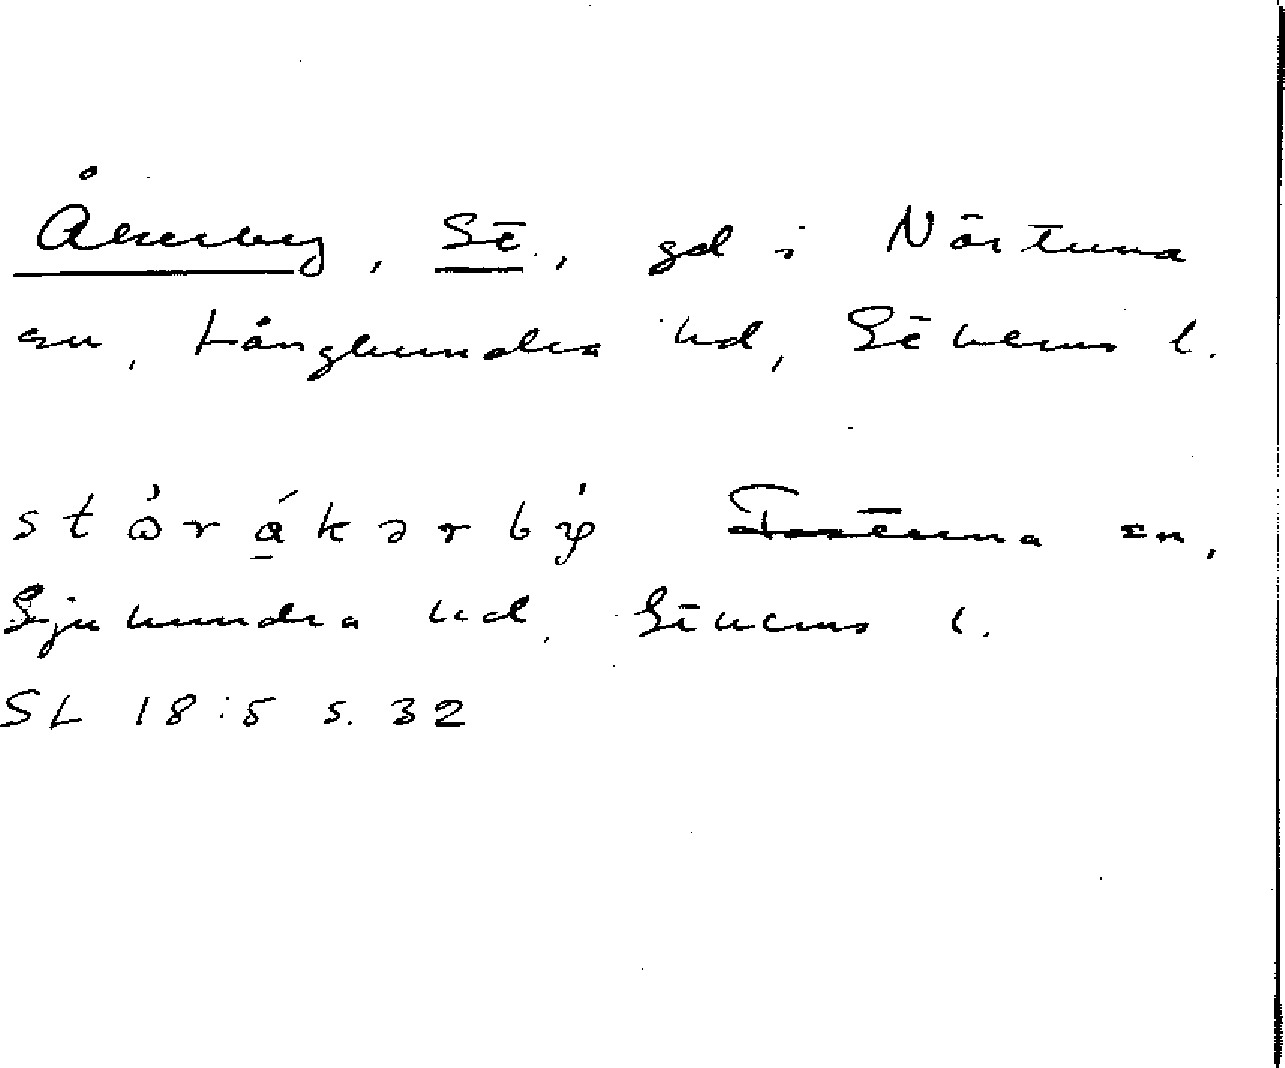 Åkerby, St., gd i Närtuna
sn, Långhundra hd, Sthlms l.
stòrákərbỳ Estuna sn,
Sjuhundra hd, Sthlms l.
SL 18:5 s. 32